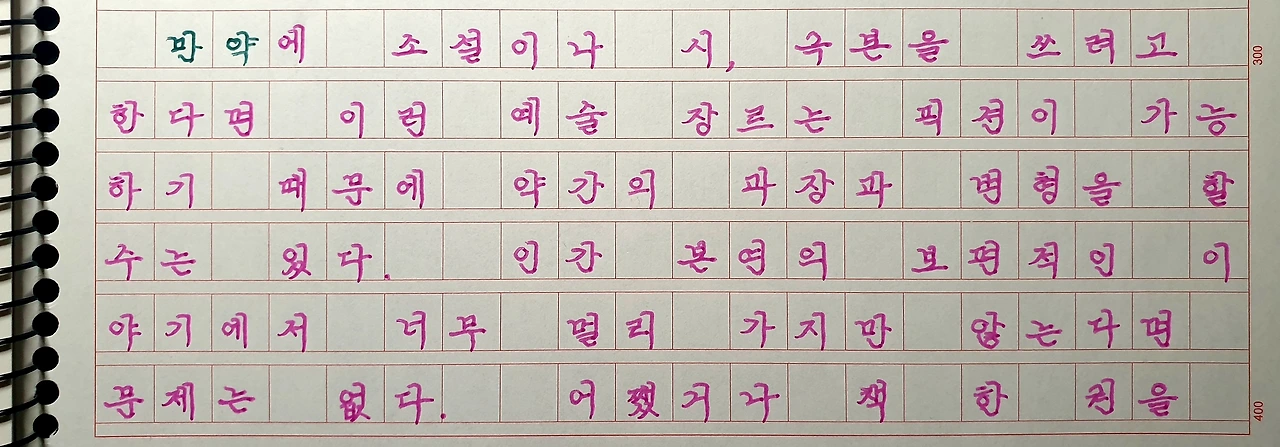 만약에 소설이나 시, 극본을 쓰려고
한다면 이런 예술 장르는 픽션이 가능
하기 때문에 약간의 과장과 변형을 할
수는 있다. 인간 본연의 보편적인 이
야기에서 너무 멀리 가지만 않는다면
문제는 없다. 어쨌거나 책 한 권을
300
400